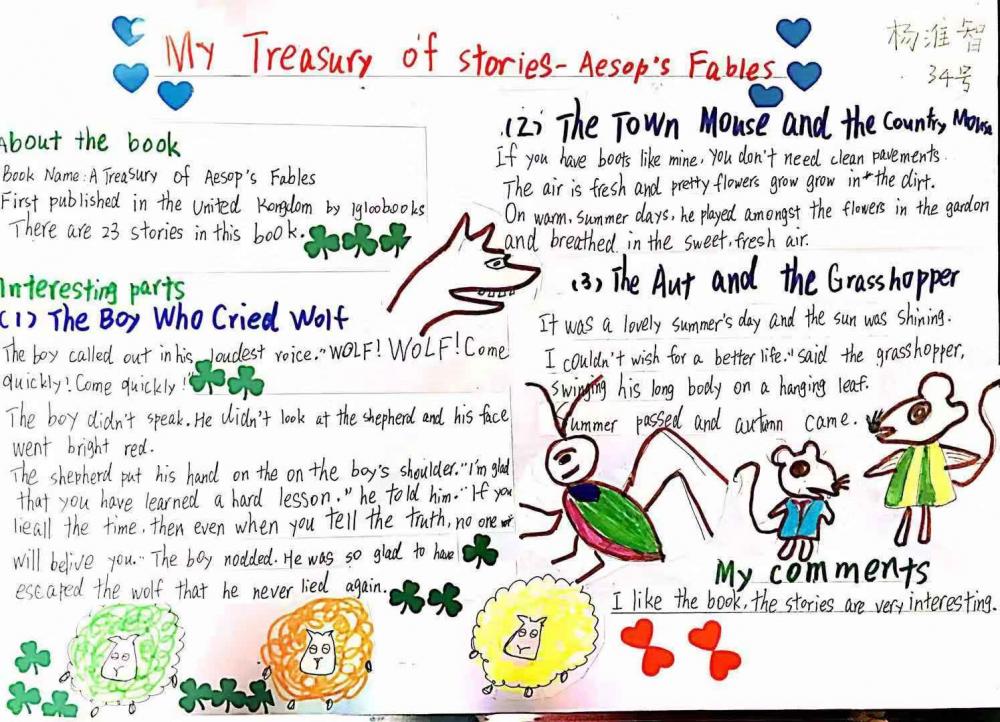 My Treasury of stories-Aesop's Fables
杨淮智
34号
About the book
Book Name: A Treasury of Aesop's Fables
First published in the United Kongdom by igloobooks
There are 23 stories in this book.
Interesting parts
(1) The Boy Who Cried Wolf
The boy called out in his loudest voice."WOLF! WOLF! Come
quickly! Come quickly!"
The boy didn't speak. He didn't look at the shepherd and his face
went bright red.
The shepherd put his hand on the on the boy's shoulder."I'm glad
that you have learned a hard lesson." he told him."If you
lieall the time, then even when you tell the truth, no one
will belive you." The boy nodded. He was so glad to have
escaped the wolf that he never lied again.
(2) The Town Mouse and the Country Mouse
If you have boots like mine, you don't need clean pavements.
The air is fresh and pretty flowers grow grow in the dirt.
On warm, summer days, he played amongst the flowers in the gardon
and breathed in the sweet, fresh air.
(3) The Aut and the Grasshopper
It was a lovely summer's day and the sun was shining.
I couldn't wish for a better life." said the grasshopper,
swinging his long body on a hanging leaf.
Summer passed and autumn came.
My comments
I like the book, the stories are very interesting.